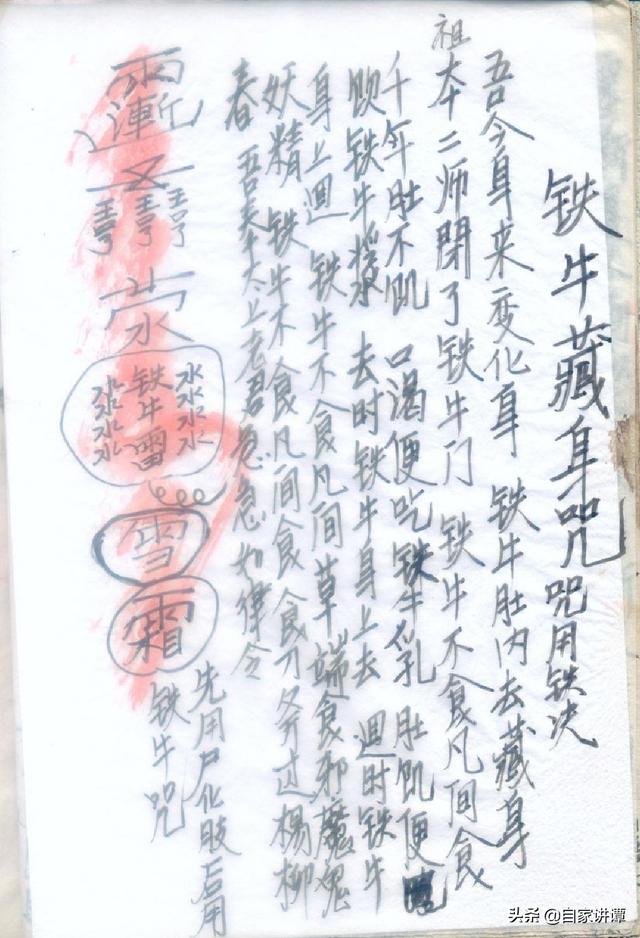 铁牛藏身咒 咒用铁决
吾令身来变化身 铁牛肚内去藏身
祖本二师閉了铁牛门 铁牛不食凡间食
千年肚不饥 口渴便吃铁牛乳 肚饥便
饮铁牛浆 去时铁牛身上去 迴时铁牛
身上迴 铁牛不食凡间草 端食邪魔鬼
妖精 铁牛不食凡间食 食刀斧过楊柳
春 吾奉太上老君急急如律令
雨漸
䨻
水水水水
铁牛雷
水水水水
雪
霜
先用尸化肢后用
铁牛咒
头条 @自家讲谭